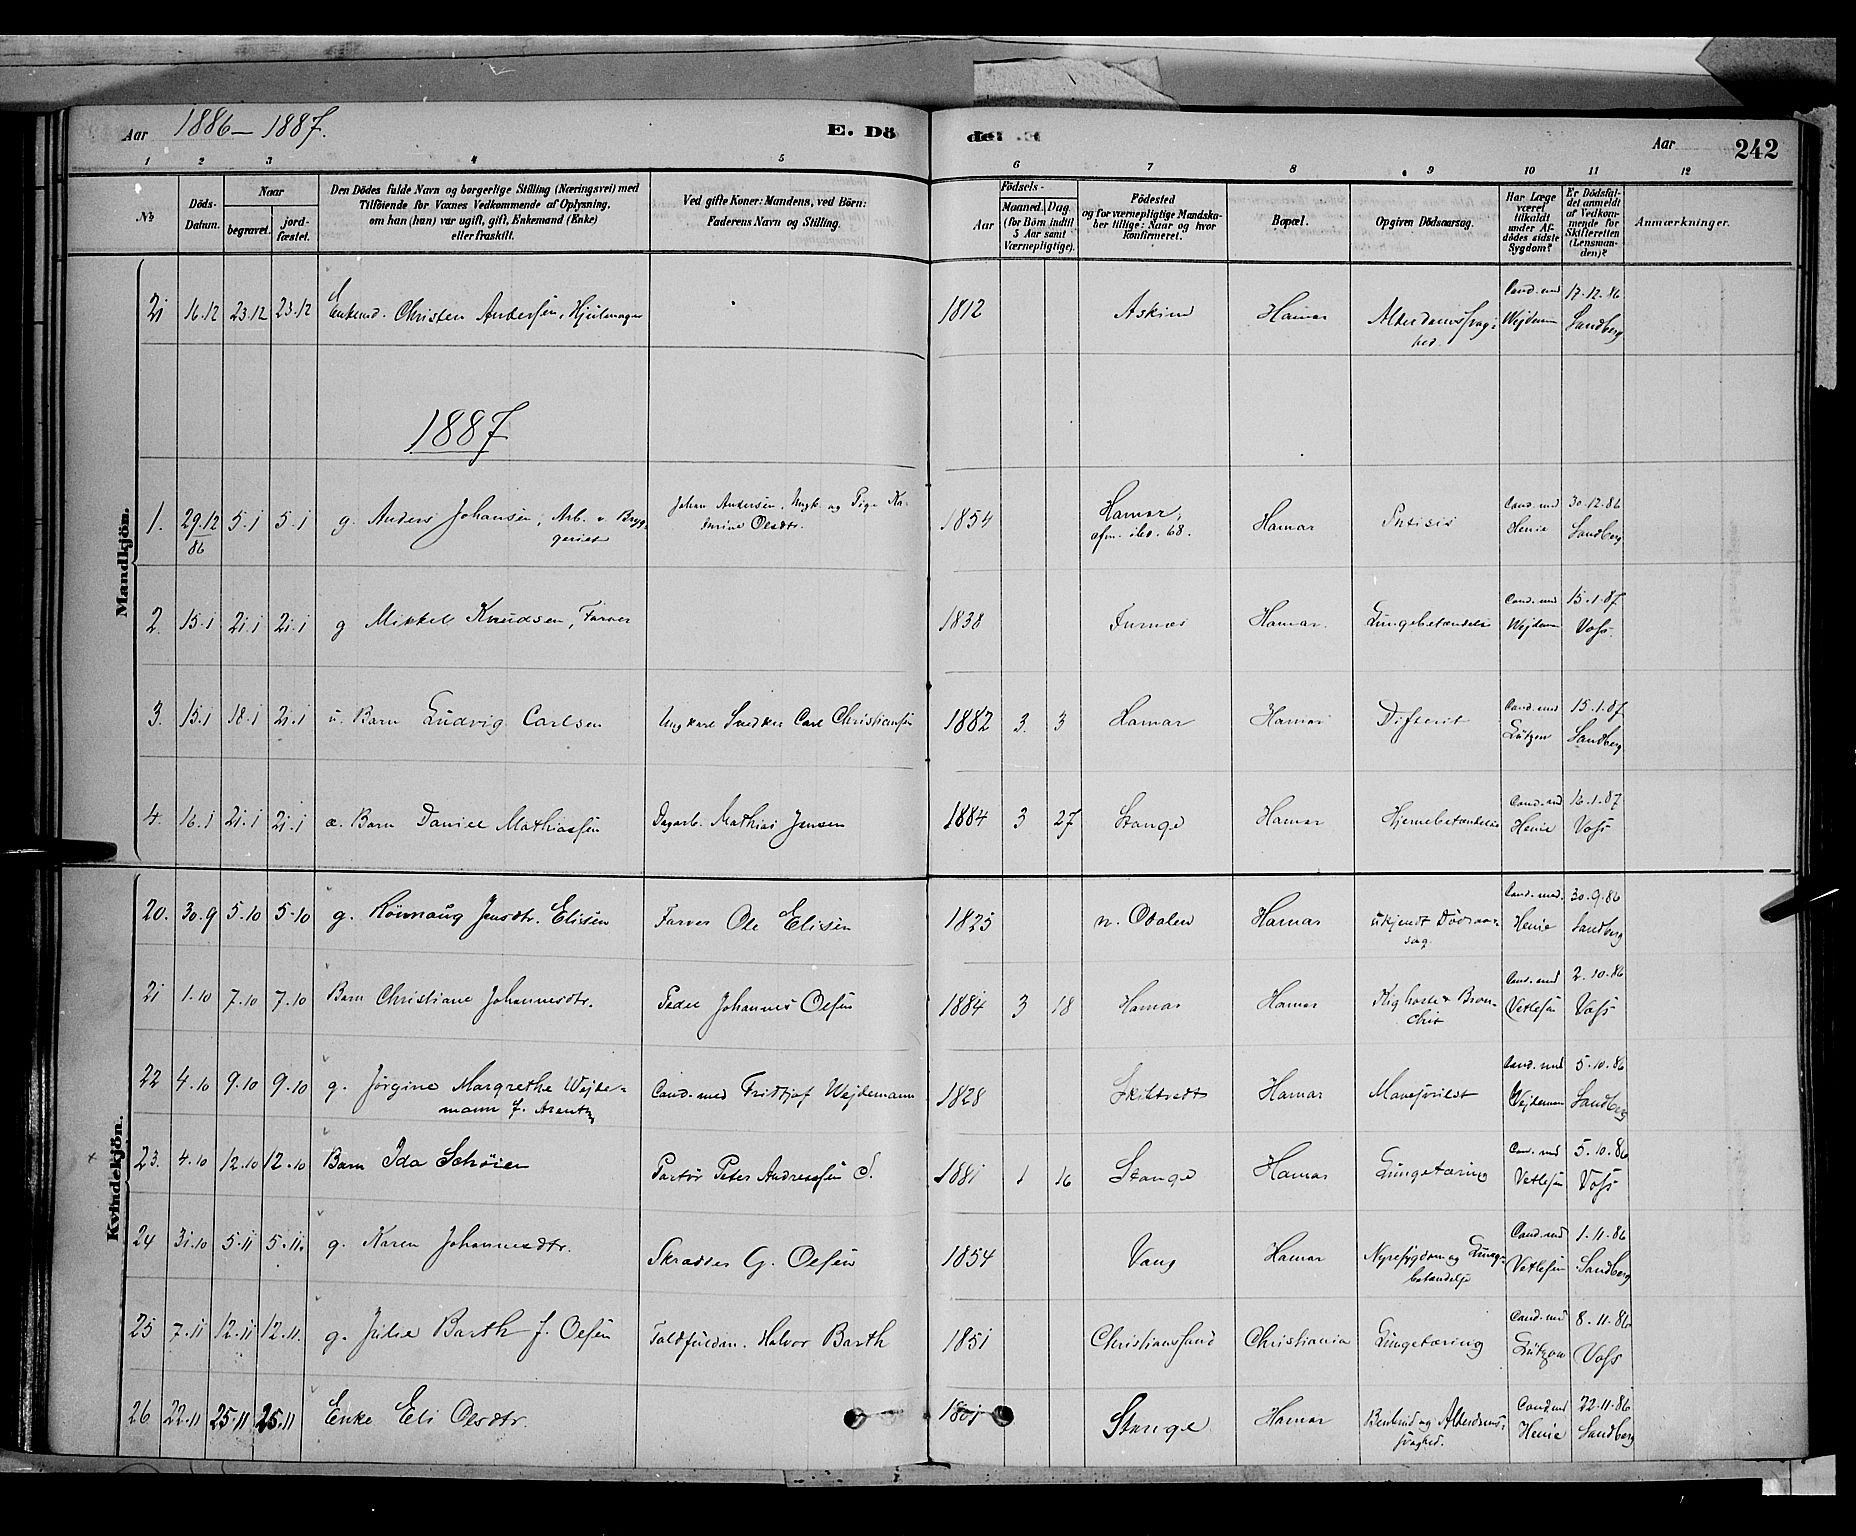 Aar 1886–1887. E. Dö
de1 .E Aar 242
1 2 3 4 5 6 7 8 9 10 11 12
No
Döds-Datum.
Naar
begravet.
jord-fæstet.
Den Dödes fulde Navn og borgerlige Stilling (Næringsvei) med
Tilföiende for Voxnes Vedkommende af Oplysning,
om han (hun) var ugift, gift, Enkemand (Enke)
eller fraskilt.
Ved gifte Koner: Mandens, ved Börn:
Faderens Navn og Stilling.
Födsels-
Aar
Maaned. Dag.
(for Börn indtil
5 Aar samt
Værnepligtige).
Födested
og for værnepligtige Mandska-
ber tillige: Naar og hvor
konfirmeret.
Bopæl.
Opgiven Dödsaarsag.
Har Læge
været
tilkaldt
under Af-
dödes sidste
Sygdom?
Er Dödsfal-
det anmeldt
af Vedkom-
mende for
Skifteretten
(Lensman-
den)?
Anmærkninger.
Mandkjön.
21 16.12 23.12 23.12 Enkemd. Christen Andersen, Hjulmager 1812 Askim Hamar Alderdomssvag-
hed. Cand. med Wejdeman 17.12.86 Sandberg
1887
1. 29.12
86 5.1 5.1 g. Anders Johansen, Arb. v. Bryg-
geriet Johan Andersen, Ungk. og Pige Ka-
trine Olsdtr. 1854 Hamar,
ibd. 68. Hamar Phtisis Cand. med Henie 30.12.86 Sandberg
2. 15.1 21.1 21.1 g Mikkel Knudsen, Farver 1838 Furnæs Hamar. Lungebetændelse Cand. med Wejdeman 15.1.87 Voss.
3. 15.1 18.1 21.1 u. Barn Ludvig Carlsen Ungkarl Snedker Carl Christiansen 1882 3. 3 Hamar Hamar Difterit Cand. med Lützow 15.1.87 Sandberg
4. 16.1 21.1 21.1 æ. Barn Daniel Mathiassen Dagarb. Mathias Jensen 1884 3 27 Stange Hamar Hjernebetændelse Cand. med Henie 16.1.87 Voss
Kvindekjön.
20. 30.9 5.10 5.10 g. Rönnaug Jensdtr. Elisen Farver Ole Elisen 1825 n. Odalen Hamar ukjendt Dödsaar-
sag. Cand. med. Henie 30.9.86 Sandberg
21 1.10 7.10 7.10 Barn Christiane Johannesdtr. Johannes Olsen 1884 3 18 Hamar Hamar Kighoste & Bron-
chit Cand. med Vetlesen 2.10.86 Voss
22 4.10 9.10 9.10 g. Jörgine Margrethe Wejde-
mann f. Arentz Cand. med Fridtjof Wejdemann 1828 Hamar Cand. med Wejdeman 5.10.86 Sandberg
23. 4.10 12.10 12.10 Barn Ida Schöien Peter Andreassen S. 1881 1 16 Stange Hamar Lungetæring Cand. med Vetlesen 5.10.86 Voss
24 31.10 5.11 5.11. g. Karen Johannesdtr. Skrædder G. Olsen 1854 Vang Hamar Nyresygdom og Lunge-
betændelse Cand. med Vetlesen 1.11.86 Sandberg
25 7.11 12.11 12.11. g. Julie Barth f. Olsen Toldfuldm. Halvor Barth 1851 Christianssand Christiania Lungetæring Cand. med Lützow 8.11.86 Voss
26 22.11 25.11 25.11 Enke Eli Olsdtr. 1801 Stange Hamar Benbrud og Alderdoms-
svaghed. Cand med Henie 22.11.86 Sandberg